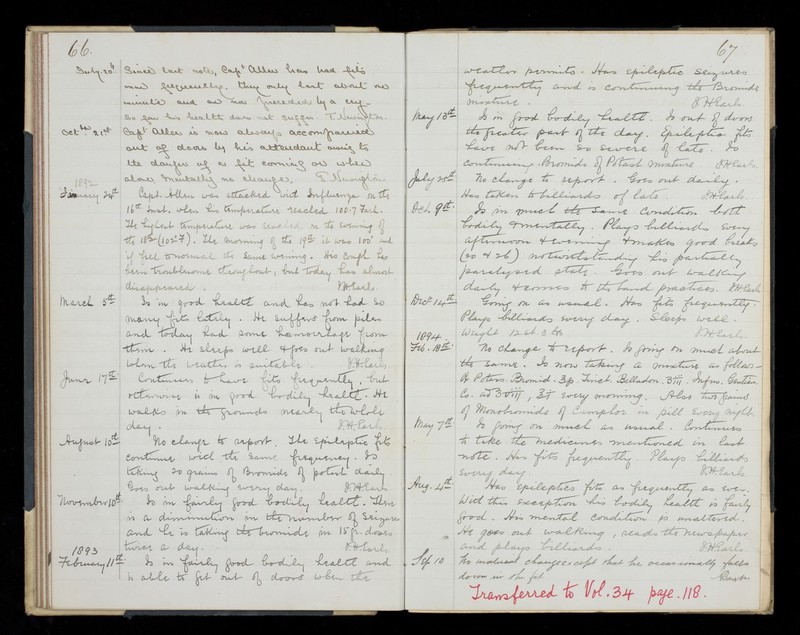 66.
July 20th Since last note, Capt Allen has had fits
more frequently. They only last about one
minute and are now preceded by a cry.
So far his health does not suffer. T. Newington.
Oct. 21st Capt Allen is now always accompanied
out of doors by his attendant owing to
the danger of a fit coming on when
alone. Mentally no change. T. Newington.
1892
January 24th Capt. Allen was attacked with Influenza on the
16th Inst. when his temperature reached 100.7 Fah.
The highest temperature was reached on the evening of
the 18th (102°F). The morning of the 19th it was 100° and
it fell to normal the same evening. His cough has
been troublesome throughout, but today has almost
disappeared.
March 5th Is in good health and has not had so
many fits lately. He suffers from piles
and today had some hæmorrhage from
them. He sleeps well & goes out walking
when the weather is suitable.
June 17th Continues to have fits frequently, but
otherwise is in good bodily health. He
walks in the grounds nearly the whole
day.
August 10th No change to report. The epileptic fits
continue with the same frequency. Is
taking 20 grains of Bromide of potash daily
Goes out walking every day
November 10th Is in fairly good bodily health. There
is a diminution in the number of seizures
and he is taking the bromide in 15 gr. doses
twice a day.
1893
February 11th Is in fairly good bodily health and
is able to get out of doors when the
67
weather permits. Has epileptic seizures
frequently and is continuing the Bromide
mixture.
May 13th Is in good bodily health. Is out of doors
the greater part of the day. Epileptic fits
have not been so severe of late. Is
continuing Bromide of Potash mixture
July 25th No change to report. Goes out daily.
Has taken to billiards of late.
Oct. 9th Is in much the same condition both
bodily & mentally. Plays billiards every
afternoon & evening & makes good breaks
(20 & 26) notwithstanding his partially
paralysed state. Goes out walking
daily & comes to the band practices.
Dec. 14th Going on as usual. Has fits frequently.
Plays billiards every day. Sleeps well.
Weight 12 st. 3 lb.
1894
Feb. 18th No change to report. Is going on much about
the same. Is now taking a mixture as follows—
Potass. Bromid. Tinct. Belladon. Infus. Gentian
Co. every morning. Also two grains
of Monobromide of Camphor in pill every night.
May 7th Is going on much as usual. Continues
to take the medicines mentioned in last
note. Has fits frequently. Plays billiards
every day
Aug. 4th Has epileptic fits as frequently as ever.
With this exception his bodily health is fairly
good. His mental condition is unaltered.
He goes out walking, reads the newspaper
and plays billiards.
Sep 10 No material change except that he occasionally falls
down in the fit.
Transferred to Vol. 34 page. 118.